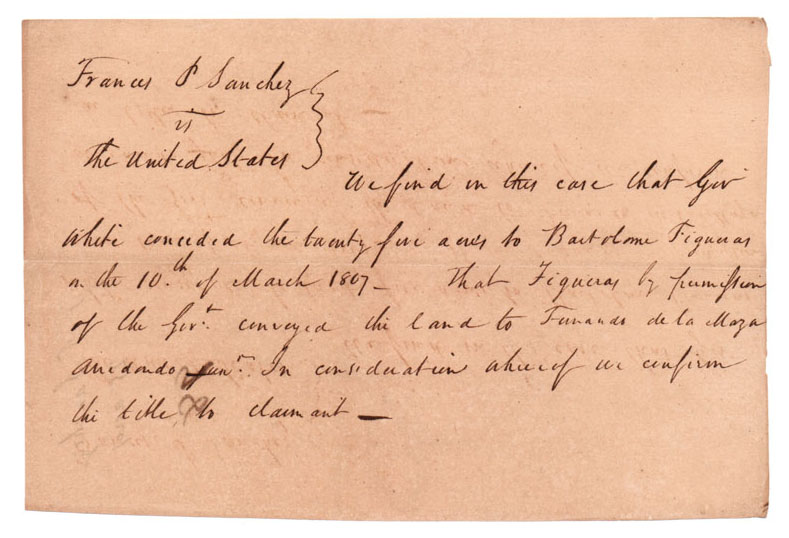 Frances P Sanchez
vs
The United States
We find in this case that Gov
White conceded the twenty five acres to Bartolome Figueras
on the 10.th of March 1807_ That Figueras by permission
of the Govt. conveyed the land to Fernando de la Maza
Arredondo junr. In consideration whereof we confirm
the title to claimant —